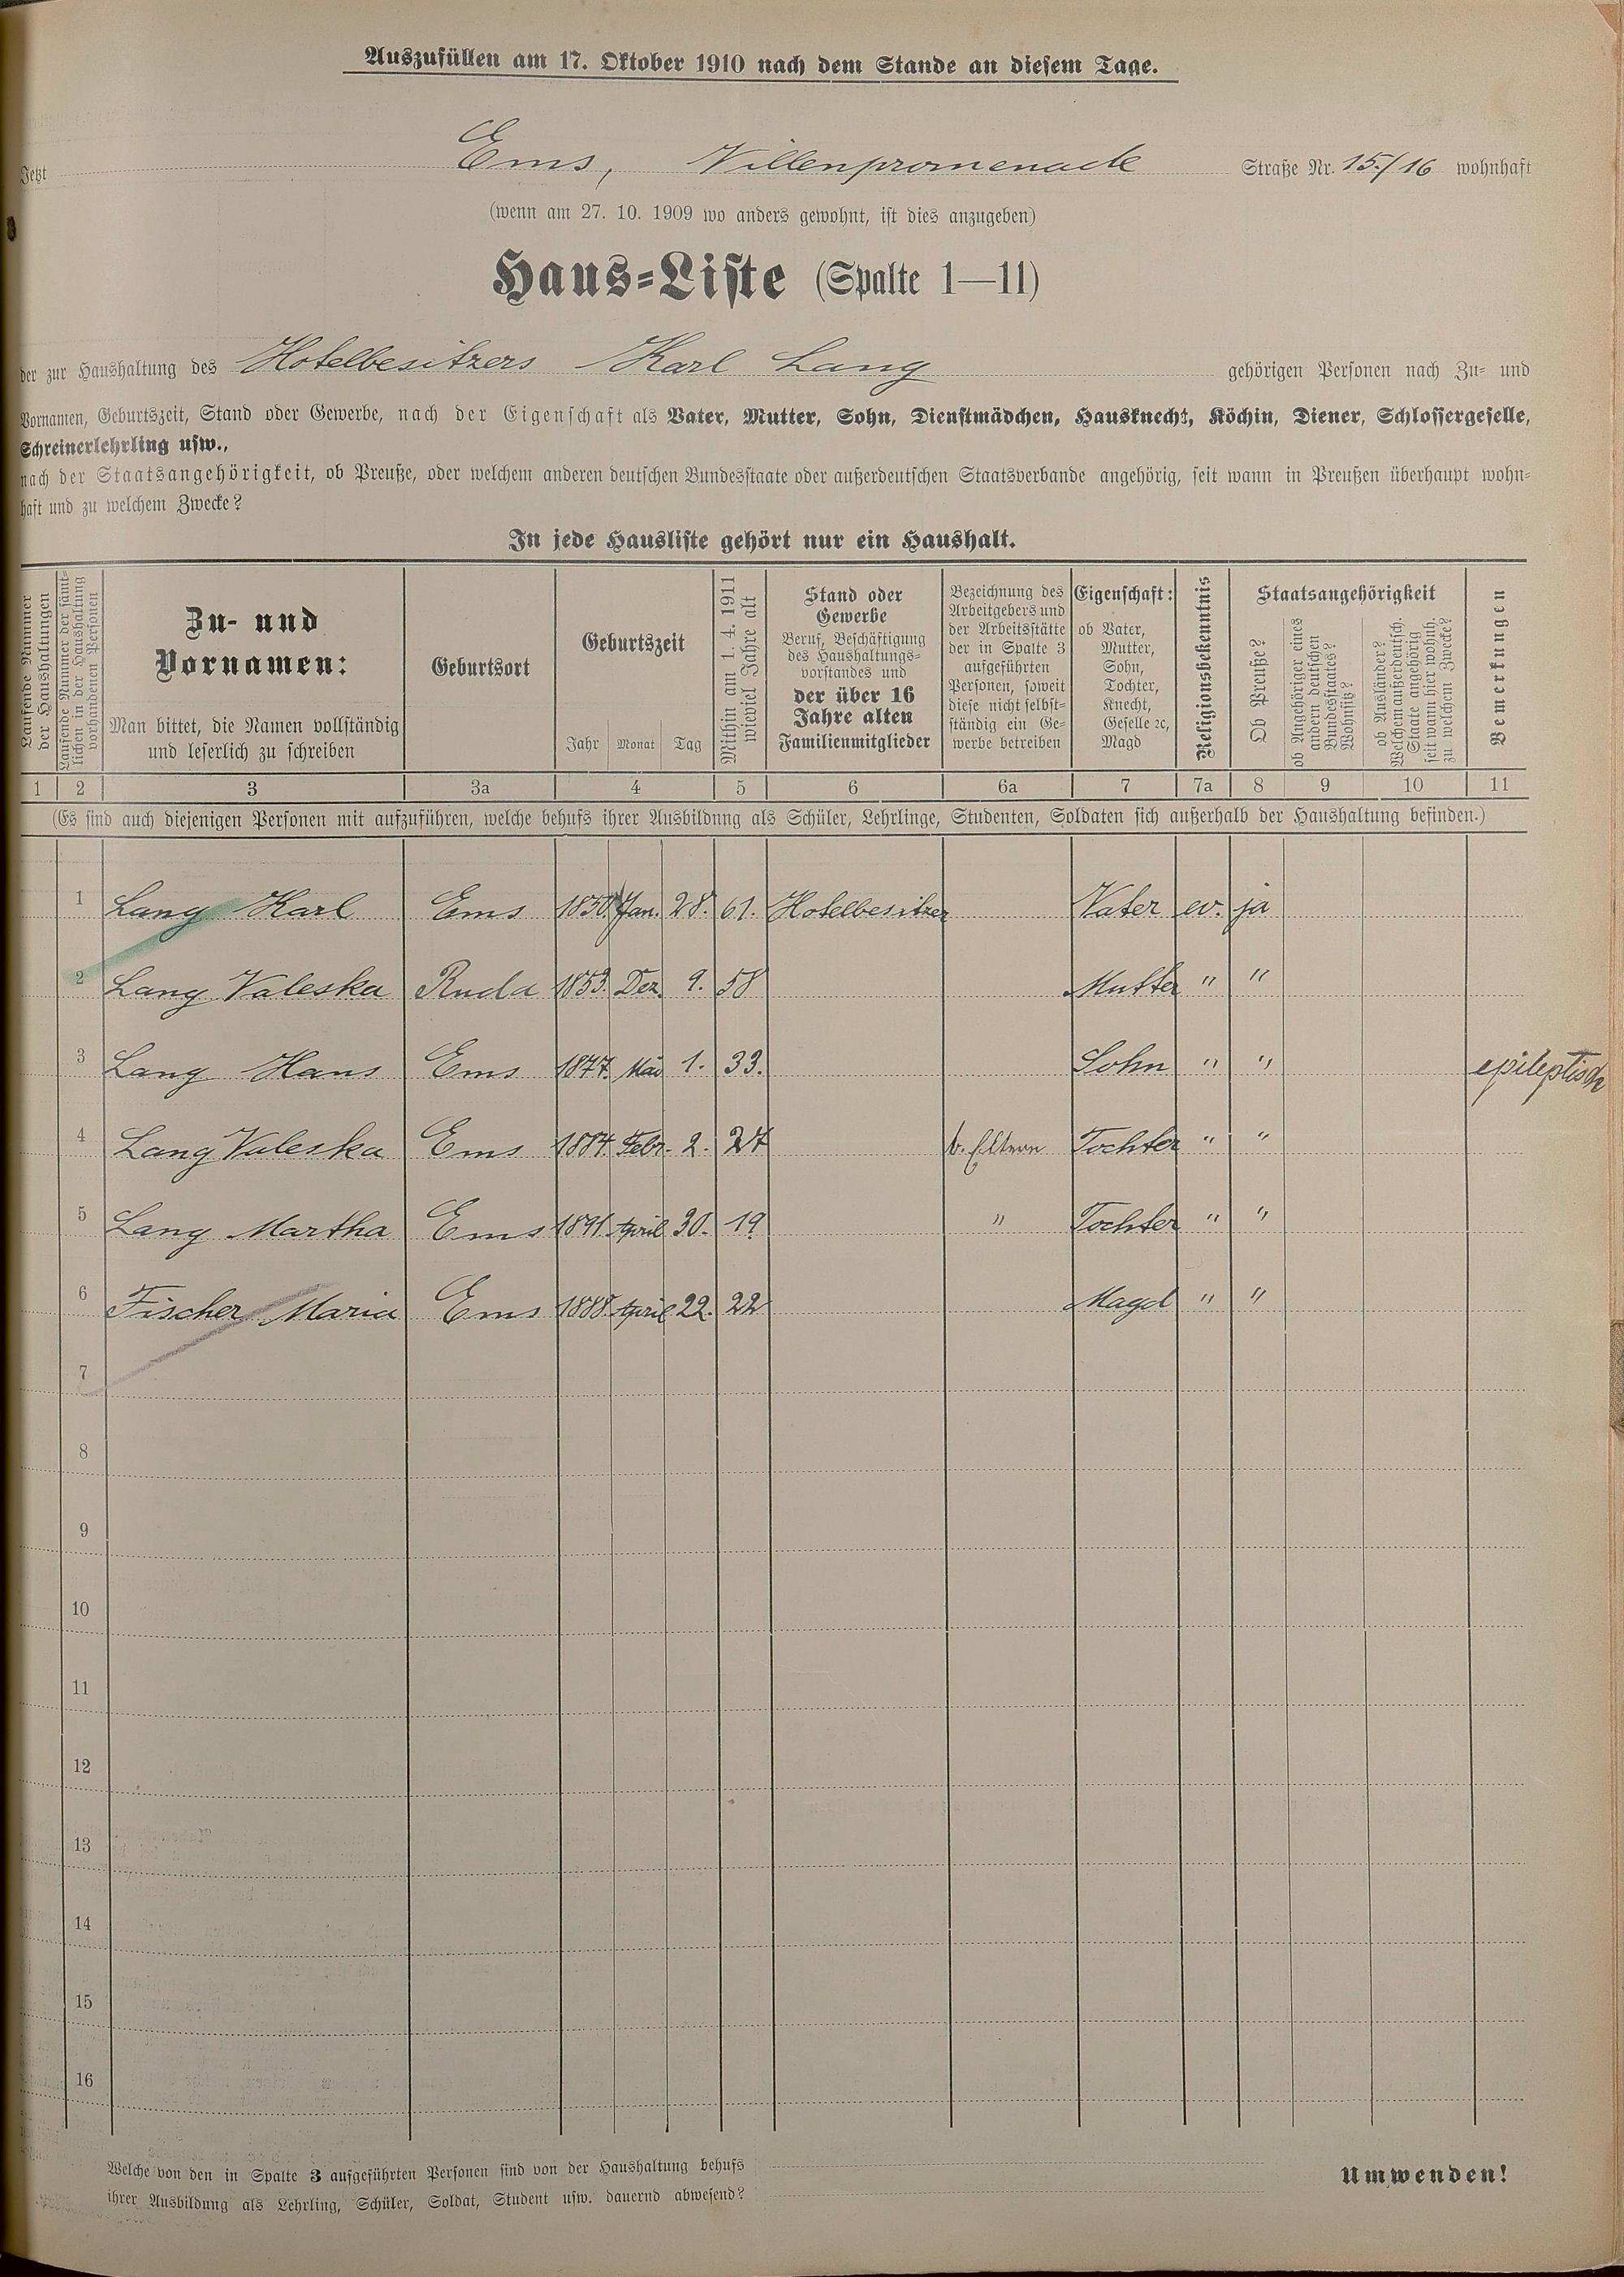 Auszufüllen am 17. Oktober 1910 nach dem Stande an diesem Tage.
Jetzt Ems, Villenpromenade Straße Nr. 15./16 wohnhaft
(wenn am 27. 10. 1909 wo anders gewohnt, ist dies anzugeben)
Haus-Liste (Spalte 1—11)
der zur Haushaltung des Hotelbesitzers Karl Lang gehörigen Personen nach Zu- und
Vornamen, Geburtszeit, Stand oder Gewerbe, nach der Eigenschaft als Vater, Mutter, Sohn, Dienstmädchen, Hausknecht, Köchin, Diener, Schlossergeselle,
Schreinerlehrling usw.,
nach der Staatsangehörigkeit, ob Preuße, oder welchem anderen deutschen Bundesstaate oder außerdeutschen Staatsverbande angehörig, seit wann in Preußen überhaupt wohn-
haft und zu welchem Zwecke?
In jede Hausliste gehört nur ein Haushalt.
Laufende Nummer
der Haushaltungen
Laufende Nummer der sämt-
lichen in der Haushaltung
vorhandenen Personen
Zu- und
Vornamen:
Man bittet, die Namen vollständig
und leserlich zu schreiben
Geburtsort
Geburtszeit
Jahr Monat Tag
Mithin am 1. 4. 1911
wieviel Jahre alt
Stand oder
Gewerbe
Beruf, Beschäftigung
des Haushaltungs-
vorstandes und
der über 16
Jahre alten
Familienmitglieder
Bezeichnung des
Arbeitgebers und
der Arbeitsstätte
der in Spalte 3
aufgeführten
Personen, soweit
diese nicht selbst-
ständig ein Ge-
werbe betreiben
Eigenschaft:
ob Vater,
Mutter,
Sohn,
Tochter,
Knecht,
Geselle ꝛc,
Magd
Religionsbekenntnis
Staatsangehörigkeit
Ob Preuße?
ob Angehöriger eines
andern deutschen
Bundesstaates?
Wohnsitz?
ob Ausländer?
Welchem außerdeutsch.
Staate angehörig
seit wann hier wohnh.
zu welchem Zwecke?
Bemerkungen
1 2 3 3a 4 5 6 6a 7 7a 8 9 10 11
(Es sind auch diejenigen Personen mit aufzuführen, welche behufs ihrer Ausbildung als Schüler, Lehrlinge, Studenten, Soldaten sich außerhalb der Haushaltung befinden.)
1 Lang Karl Ems 1850. Jan. 28. 61. Hotelbesitzer Vater ev. ja
2 Lang Valeska Ruda 1853. Dez. 9. 58 Mutter " "
3 Lang Hans Ems 1877. Mai 1. 33. Sohn " " epileptisch
4 Lang Valeska Ems 1884. Febr. 2. 27 b. Eltern Tochter " "
5 Lang Martha Ems 1891. April 30. 19 " Tochter " "
6 Fischer Maria Ems 1888. April 22. 22 Magd " "
7
8
9
10
11
12
13
14
15
16
Welche von den in Spalte 3 aufgeführten Personen sind von der Haushaltung behufs
ihrer Ausbildung als Lehrling, Schüler, Soldat, Student usw. dauernd abwesend?
Umwenden!